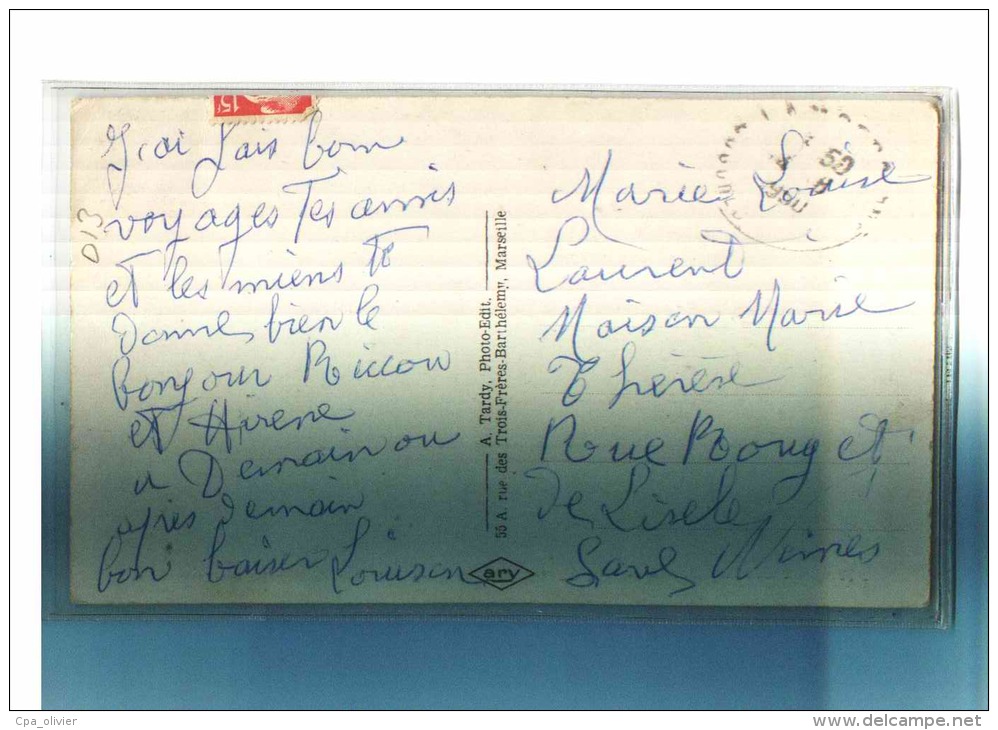 15f
013
J,ai fais bon
voyages Tes amis
et les miens te
Donnes bien le
bonjour Riccou
et Hirene
a Demain ou
apres demain
bon baiser Louison
A. Tardy, Photo-Edit.
55 A rue des Trois-Frères-Barthélemy, Marseille
ary
Marie Louise
Laurent
Maison Marie
Thérèse
Rue Rouget
de Lisele
Nimes
Cpa_olivier
www.delcampe.net